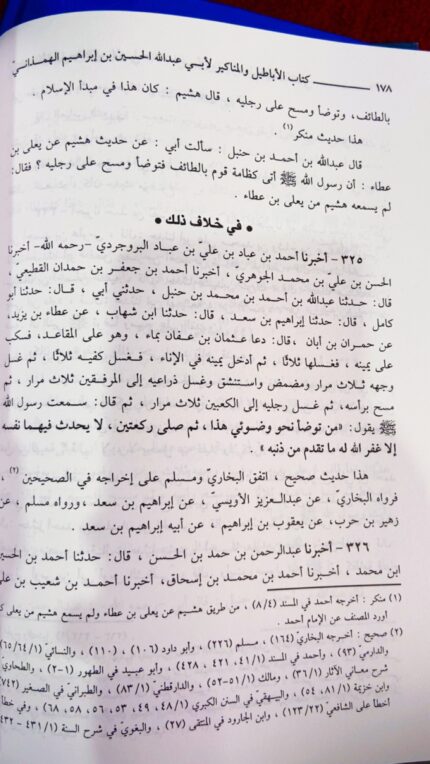 ١٧٨ كتاب الأباطيل والمناكير لأبي عبدالله الحسين بن إبراهيم الهمذاني
بالطائف، وتوضأ ومسح على رجليه ، قال هشيم : كان هذا في مبدأ الإسلام .
هذا حديث منكر(١) .
قال عبدالله بن أحمد بن حنبل : سألت أبي : عن حديث هشيم عن يعلى بن
عطاء : أن رسول الله ﷺ أتى كظامة قوم بالطائف فتوضأ ومسح على رجليه ؟ فقال:
لم يسمعه هشيم من يعلى بن عطاء .
• في خلاف ذلك •
٣٢٥ - أخبرنا أحمد بن عباد بن عليّ بن عباد البروجرديّ -رحمه الله- أخبرنا
الحسن بن عليّ بن محمد الجوهريّ ، أخبرنا أحمد بن جعفر بن حمدان القطيعي ،
قال: حدثنا عبدالله بن أحمد بن محمد بن حنبل ، حدثني أبي ، قال: حدثنا أبو
كامل ، قال: حدثنا إبراهيم بن سعد ، قال: حدثنا ابن شهاب ، عن عطاء بن يزيد،
عن حمران بن أبان ، قال: دعا عثمان بن عفان بماء ، وهو على المقاعد، فسكب
على يمينه ، فغسلها ثلاثًا ، ثم أدخل يمينه في الإناء ، فغسل كفيه ثلاثًا ، ثم غسل
وجهه ثلاث مرار ومضمض واستنشق وغسل ذراعيه إلى المرفقين ثلاث مرار ، ثم
مسح برأسه، ثم غسل رجليه إلى الكعبين ثلاث مرار ، ثم قال: سمعت رسول الله
ﷺ يقول: «من توضأ نحو وضوئي هذا ، ثم صلى ركعتين ، لا يحدث فيهما نفسه
إلا غفر الله له ما تقدم من ذنبه» .
هذا حديث صحيح ، اتفق البخاريّ ومسلم على إخراجه في الصحيحين (٢) ،
فرواه البخاريّ ، عن عبدالعزيز الأويسيّ ، عن إبراهيم بن سعد ، ورواه مسلم ، عن
زهير بن حرب، عن يعقوب بن إبراهيم ، عن أبيه إبراهيم بن سعد .
٣٢٦ - أخبرنا عبدالرحمن بن حمد بن الحسن ، قال: حدثنا أحمد بن الحسين
ابن محمد ، أخبرنا أحمد بن محمد بن إسحاق، أخبرنا أحمد بن شعيب بن علي
(١) منكر : أخرجه أحمد في المسند (٨/٤) ، من طريق هشيم عن يعلى بن عطاء ولم يسمع هشيم من يعلى
أورد المصنف عن الإمام أحمد .
(٢) صحيح : أخرجه البخاريّ (١٦٤) ، مسلم (٢٢٦) ، وأبو داود (١٠٦) ، (١١٠) ، والنسائيّ (٦٥/٦٤/١)
والدارمي (٩٣) ، وأحمد في المسند (٤١/١، ٤٢١ ، ٤٢٨) ، وأبو عبيد في الطهور (١-٢) ، والطحاويّ
شرح معاني الآثار (٣٦/١) ، ومالك (٥١/١-٥٢) ، والدارقطنيّ (٨٣/١) ، والطبراني في الصغير (٧٤٢)
وابن خزيمة (٨١/١، ٥٤) ، والبيهقيّ في السنن الكبرى (٤٨/١، ٤٩، ٥٣، ٥٦، ٥٨، ٦٨) ، وفي خطأ
أخطأ على الشافعيّ (١٢٣/٢٢) ، وابن الجارود في المنتقى (٢٧) ، والبغويّ في شرح السنة (٤٣١/١ - ٤٣٢